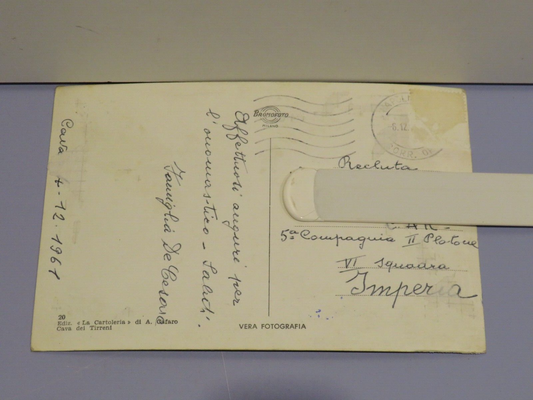 Cava 4-12-1961
Affettuosi auguri per
l'onomastico - Saluti.
Famiglia De Cesare
Recluta
C.A.R.
5ª Compagnia II Plotone
VI Squadra
Imperia
VERA FOTOGRAFIA
20
Ediz. «La Cartoleria» di A.
Cava dei Tirreni